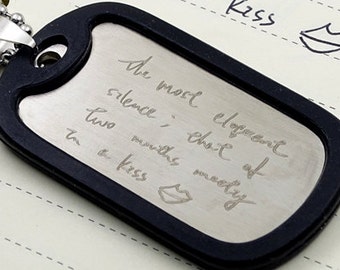 kiss
the most eloquent
silence; that of
two mouths meeting
in a kiss